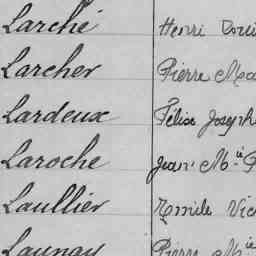 Larché Henri
Larcher Pierre
Lardeux Félix Joseph
Laroche Jean M.ie
Laullier Emile
Launay Pierre M.ie